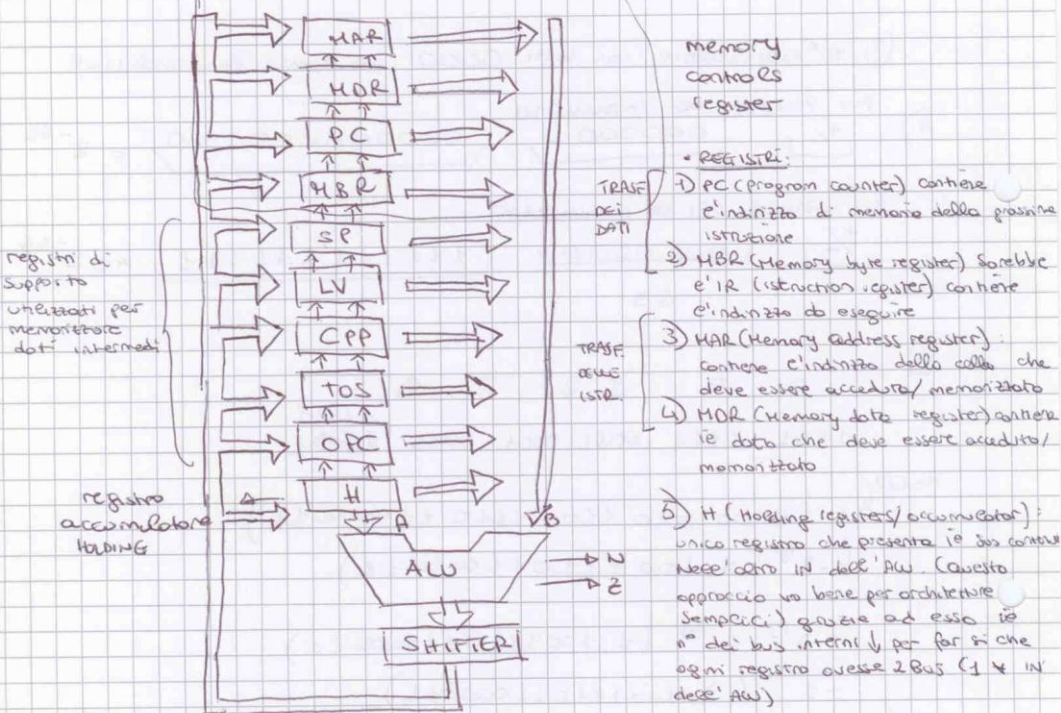 MAR
MDR
PC
MBR
SP
LV
CPP
TOS
OPC
H
A
B
ALU
N
Z
SHIFTER
registri di
supporto
utilizzati per
memorizzare
dati intermedi
registro
accumulatore
HOLDING
memory
controls
register
• REGISTRI:
TRASF.
DEI
DATI
1) PC (program counter) contiene
l'indirizzo di memoria della prossima
istruzione
2) MBR (Memory byte register) sarebbe
l'IR (istruction register) contiene
l'indirizzo da eseguire
TRASF.
DELLE
ISTR.
3) MAR (Memory address register):
contiene l'indirizzo della cella che
deve essere acceduta/memorizzata
4) MDR (Memory data register) contiene
il dato che deve essere acceduto/
memorizzato
5) H (Holding registers/accumulator):
unico registro che presenta il suo
nell'altro IN dell'ALU. (Questo
approccio va bene per architetture
semplici) grazie ad esso il
n° dei bus interni ↓ per far si che
ogni registro avesse 2 Bus (1 IN
dell'ALU)